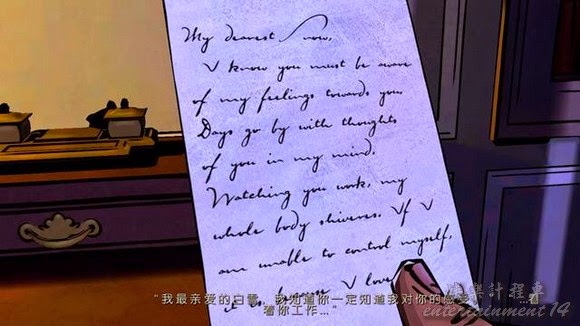 My dearest Snow,
I know you must be aware
of my feelings towards you.
Days go by with thoughts
of you in my mind.
Watching you work, my
whole body shivers. If I
am unable to control myself,
it is because I love
"我最亲爱的白雪，我知道你一定知道我对你的感受
看你工作...”
娛樂計程車
entertainment 14